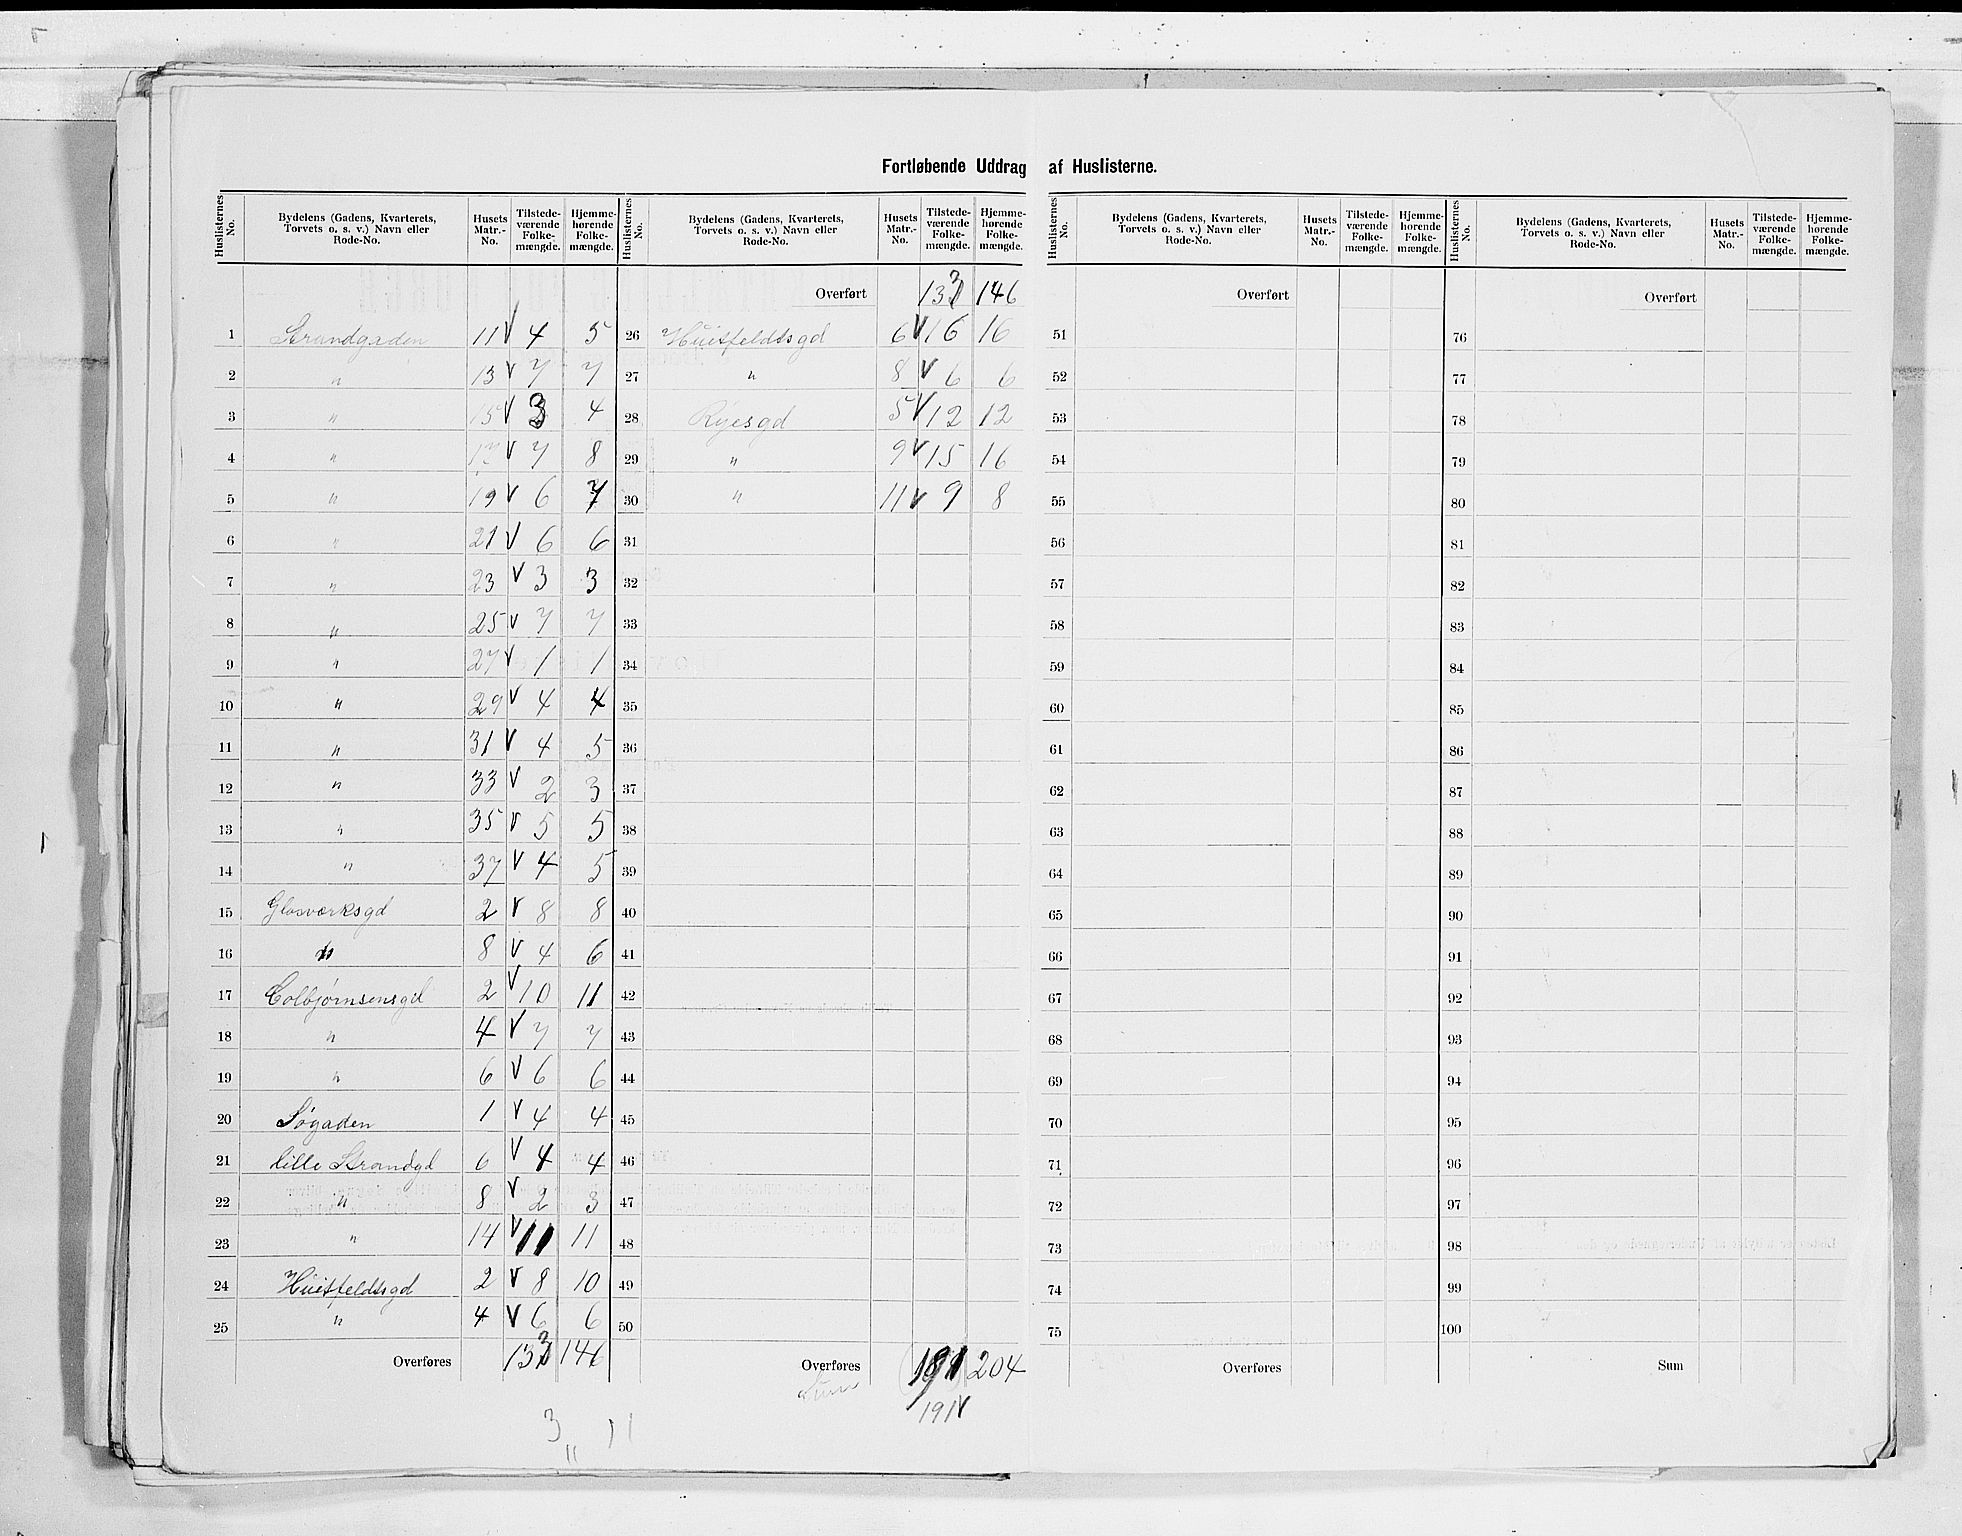 Fortløbende Uddrag af Huslisterne.
Huslisternes No. | Bydelens (Gadens, Kvarterets, Torvets o. s. v.) Navn eller Rode-No. | Husets Matr.-No. | Tilstedeværende Folkemængde. | Hjemmehørende Folkemængde.
1 Strandgaden 11 V 4 5
2 " 13 V 7 7
3 " 15 V 3 4
4 " 17 V 7 8
5 " 19 V 6 7
6 " 21 V 6 6
7 " 23 V 3 3
8 " 25 V 7 7
9 " 27 V 1 1
10 " 29 V 4 4
11 " 31 V 4 5
12 " 33 V 2 3
13 " 35 V 5 5
14 " 37 V 4 5
15 Glasværksgd 2 V 8 8
16 " 8 V 4 6
17 Colbjørnsensgd 2 V 10 11
18 " 4 V 7 7
19 " 6 V 6 6
20 Søgaden 1 V 4 4
21 lille Strandgd 6 V 4 4
22 " 8 V 2 3
23 " 14 V 11 11
24 Huitfeldtsgd 2 V 8 10
25 " 4 V 6 6
Overføres 133 146
3 " 11
Huslisternes No. | Bydelens (Gadens, Kvarterets, Torvets o. s. v.) Navn eller Rode-No. | Husets Matr.-No. | Tilstedeværende Folkemængde. | Hjemmehørende Folkemængde.
Overført 133 146
26 Huitfeldtsgd 6 V 16 16
27 " 8 V 6 6
28 Ryesgd 5 V 12 12
29 " 9 V 15 16
30 " 11 V 9 8
31
32
33
34
35
36
37
38
39
40
41
42
43
44
45
46
47
48
49
50
Overføres 191 204
Sum 191 V
Huslisternes No. | Bydelens (Gadens, Kvarterets, Torvets o. s. v.) Navn eller Rode-No. | Husets Matr.-No. | Tilstedeværende Folkemængde. | Hjemmehørende Folkemængde.
Overført
51
52
53
54
55
56
57
58
59
60
61
62
63
64
65
66
67
68
69
70
71
72
73
74
75
Overføres
Huslisternes No. | Bydelens (Gadens, Kvarterets, Torvets o. s. v.) Navn eller Rode-No. | Husets Matr.-No. | Tilstedeværende Folkemængde. | Hjemmehørende Folkemængde.
Overført
76
77
78
79
80
81
82
83
84
85
86
87
88
89
90
91
92
93
94
95
96
97
98
99
100
Sum